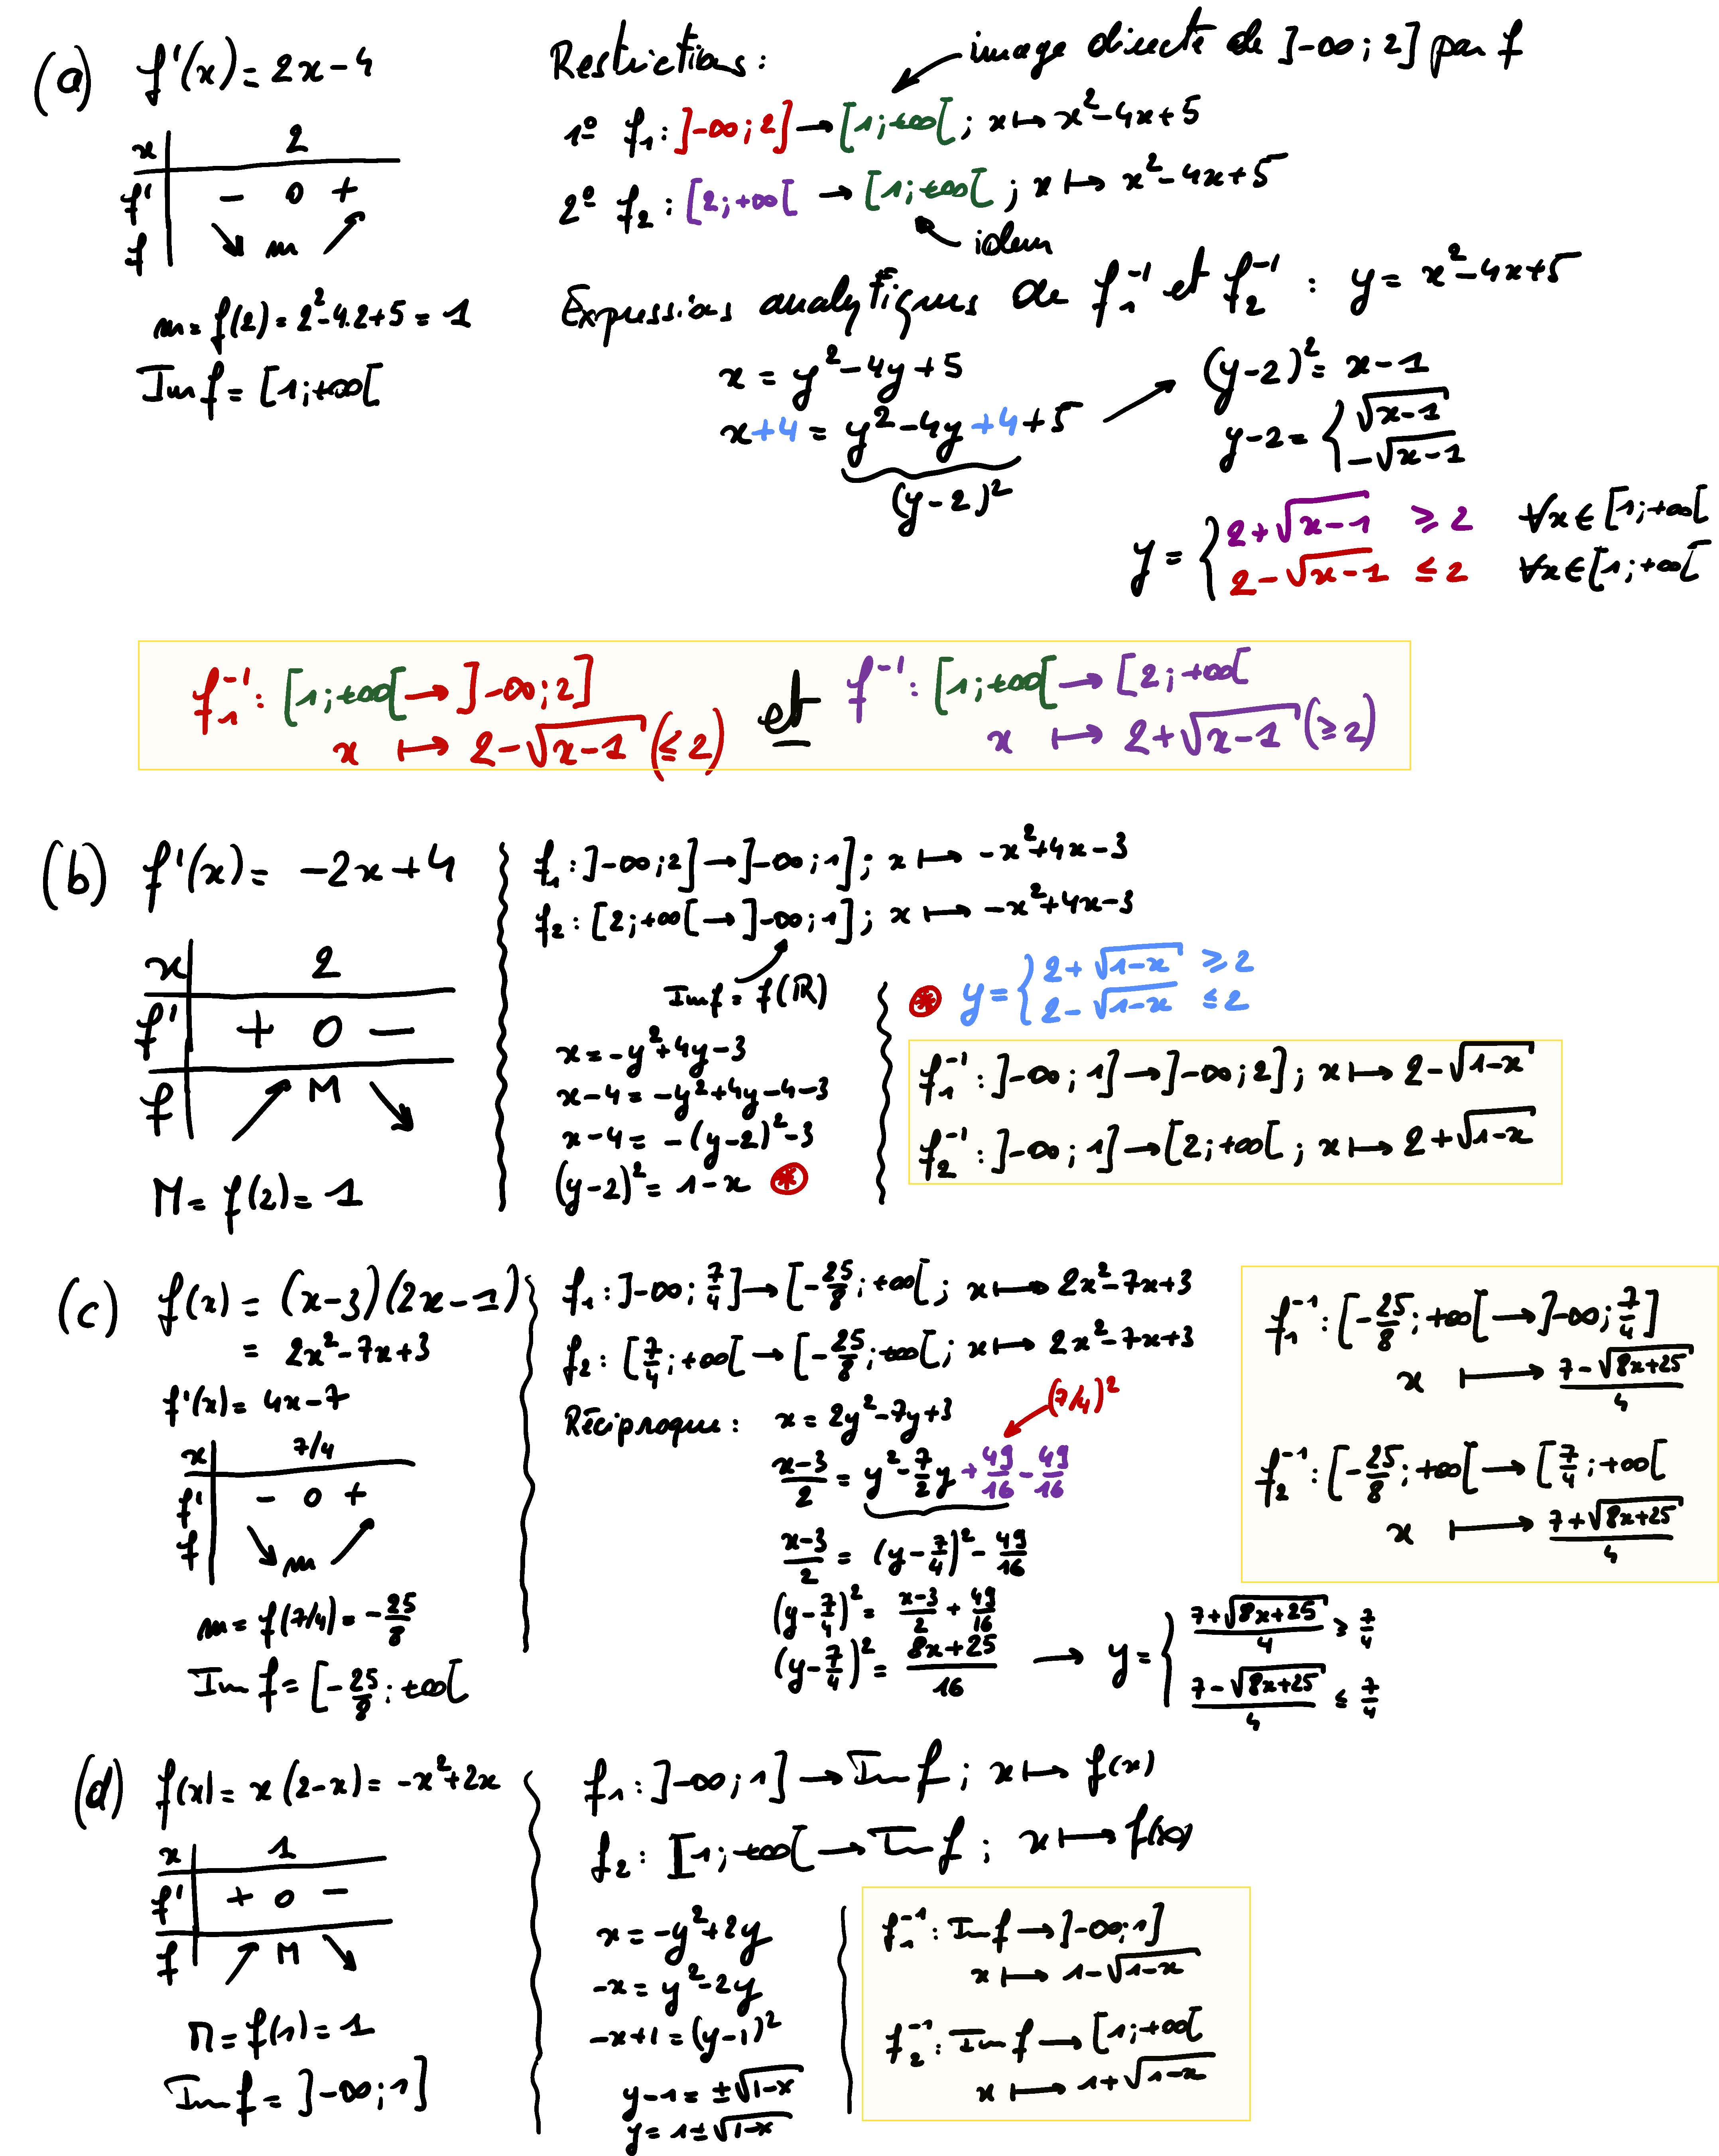 (a) f'(x) = 2x-4
x | 2
f' | - 0 +
f | ↘ m ↗
m = f(2) = 2²-4.2+5 = 1
Im f = [1;+∞[
Restrictions :
image directe de ]-∞;2] par f
1º f₁ : ]-∞;2] → [1;+∞[ ; x ↦ x²-4x+5
2º f₂ : [2;+∞[ → [1;+∞[ ; x ↦ x²-4x+5
idem
Expressions analytiques de f₁⁻¹ et f₂⁻¹ : y = x²-4x+5
x = y²-4y+5
x+4 = y²-4y+4+5
(y-2)²
→ (y-2)² = x-1
y-2 = { √(x-1)
-√(x-1)
y = { 2+√(x-1) ≥ 2 ∀x∈[1;+∞[
2-√(x-1) ≤ 2 ∀x∈[1;+∞[
f₁⁻¹ : [1;+∞[ → ]-∞;2] et f⁻¹ : [1;+∞[ → [2;+∞[
x ↦ 2-√(x-1) (≤2) x ↦ 2+√(x-1) (≥2)
(b) f'(x) = -2x+4
x | 2
f' | + 0 -
f | ↗ M ↘
M = f(2) = 1
f₁ : ]-∞;2] → ]-∞;1] ; x ↦ -x²+4x-3
f₂ : [2;+∞[ → ]-∞;1] ; x ↦ -x²+4x-3
Im f = f(ℝ)
x = -y²+4y-3
x-4 = -y²+4y-4-3
x-4 = -(y-2)²-3
(y-2)² = 1-x ⊛
⊛ y = { 2+√(1-x) ≥ 2
2-√(1-x) ≤ 2
f₁⁻¹ : ]-∞;1] → ]-∞;2] ; x ↦ 2-√(1-x)
f₂⁻¹ : ]-∞;1] → [2;+∞[ ; x ↦ 2+√(1-x)
(c) f(x) = (x-3)(2x-1)
= 2x²-7x+3
f'(x) = 4x-7
x | 7/4
f' | - 0 +
f | ↘ m ↗
m = f(7/4) = -25/8
Im f = [-25/8;+∞[
f₁ : ]-∞;7/4] → [-25/8;+∞[ ; x ↦ 2x²-7x+3
f₂ : [7/4;+∞[ → [-25/8;+∞[ ; x ↦ 2x²-7x+3
(7/4)²
Réciproque : x = 2y²-7y+3
(x-3)/2 = y²-7/2y+49/16-49/16
(x-3)/2 = (y-7/4)²-49/16
(y-7/4)² = (x-3)/2+49/16
(y-7/4)² = (8x+25)/16 → y = { (7+√(8x+25))/4 ≥ 7/4
(7-√(8x+25))/4 ≤ 7/4
f₁⁻¹ : [-25/8;+∞[ → ]-∞;7/4]
x ↦ (7-√(8x+25))/4
f₂⁻¹ : [-25/8;+∞[ → [7/4;+∞[
x ↦ (7+√(8x+25))/4
(d) f(x) = x(2-x) = -x²+2x
x | 1
f' | + 0 -
f | ↗ M ↘
M = f(1) = 1
Im f = ]-∞;1]
f₁ : ]-∞;1] → Im f ; x ↦ f(x)
f₂ : [1;+∞[ → Im f ; x ↦ f(x)
x = -y²+2y
-x = y²-2y
-x+1 = (y-1)²
y-1 = ±√(1-x)
y = 1±√(1-x)
f₁⁻¹ : Im f → ]-∞;1]
x ↦ 1-√(1-x)
f₂⁻¹ : Im f → [1;+∞[
x ↦ 1+√(1-x)